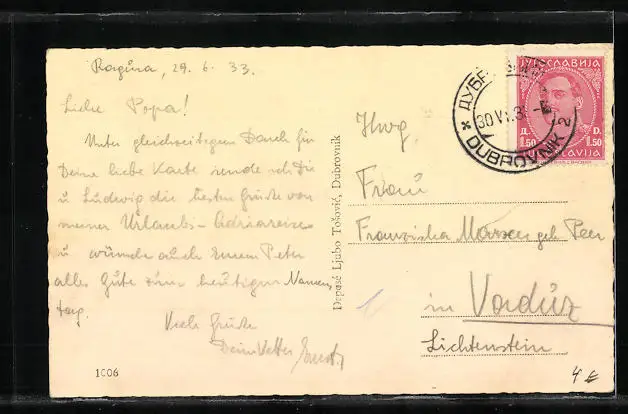 Ragusa, 29. 6. 33.
Liebe Popa!
Unter gleichzeitigem Dank für
Deine liebe Karte sende ich Dir
u Ludwig die besten Grüße von
meiner Urlaubs-Adriareise
u wünsche auch Eurem Peter
alles Gute zum heutigen Namens
tag.
Viele Grüße
Dein Vetter
1006
Deposé Ljubo Tošović, Dubrovnik
ЈУГОСЛАВИЈА
Д. D.
1.50 1.50
30 VI.
DUBROVNIK 2
Hwg.
Frau
Franziska geb
in Vaduz
Lichtenstein
4 €